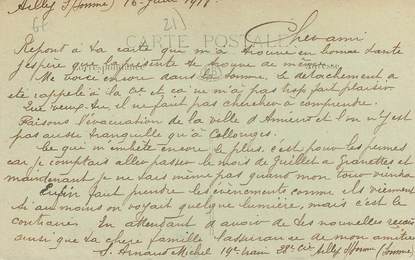 Ailly s/Somme, 16 Juin 1918
21
CARTE POSTALE
Cher ami
Répont à ta carte que m'a trouvé en bonne santé
j'espère que la présente te trouve de même.
Me voici encore dans la Somme. Le détachement a
ete rappelé à la Cie et ca ne m'a pas trop fait plaisir
Que veux-tu, il ne faut pas chercher à comprendre.
Faisons l'évacuation de la ville d'Amiens et l'on n'y est
pas aussi tranquille qu'à Collonges.
Ce que m'embête encore le plus, c'est pour les permes
car je comptais aller passer le mois de Juillet a
maintenant je ne sais même pas quand mon tour viendra
Enfin faut prendre les évènements comme ils viennent
Si au moins on voyait quelque lumière, mais c'est le
contraire. En attendant d'avoir de tes nouvelles reçois
ainsi que ta chère famille l'assurance de mon amitié
Arnaud Michel 19e train Cie Ailly s/ Somme (Somme)